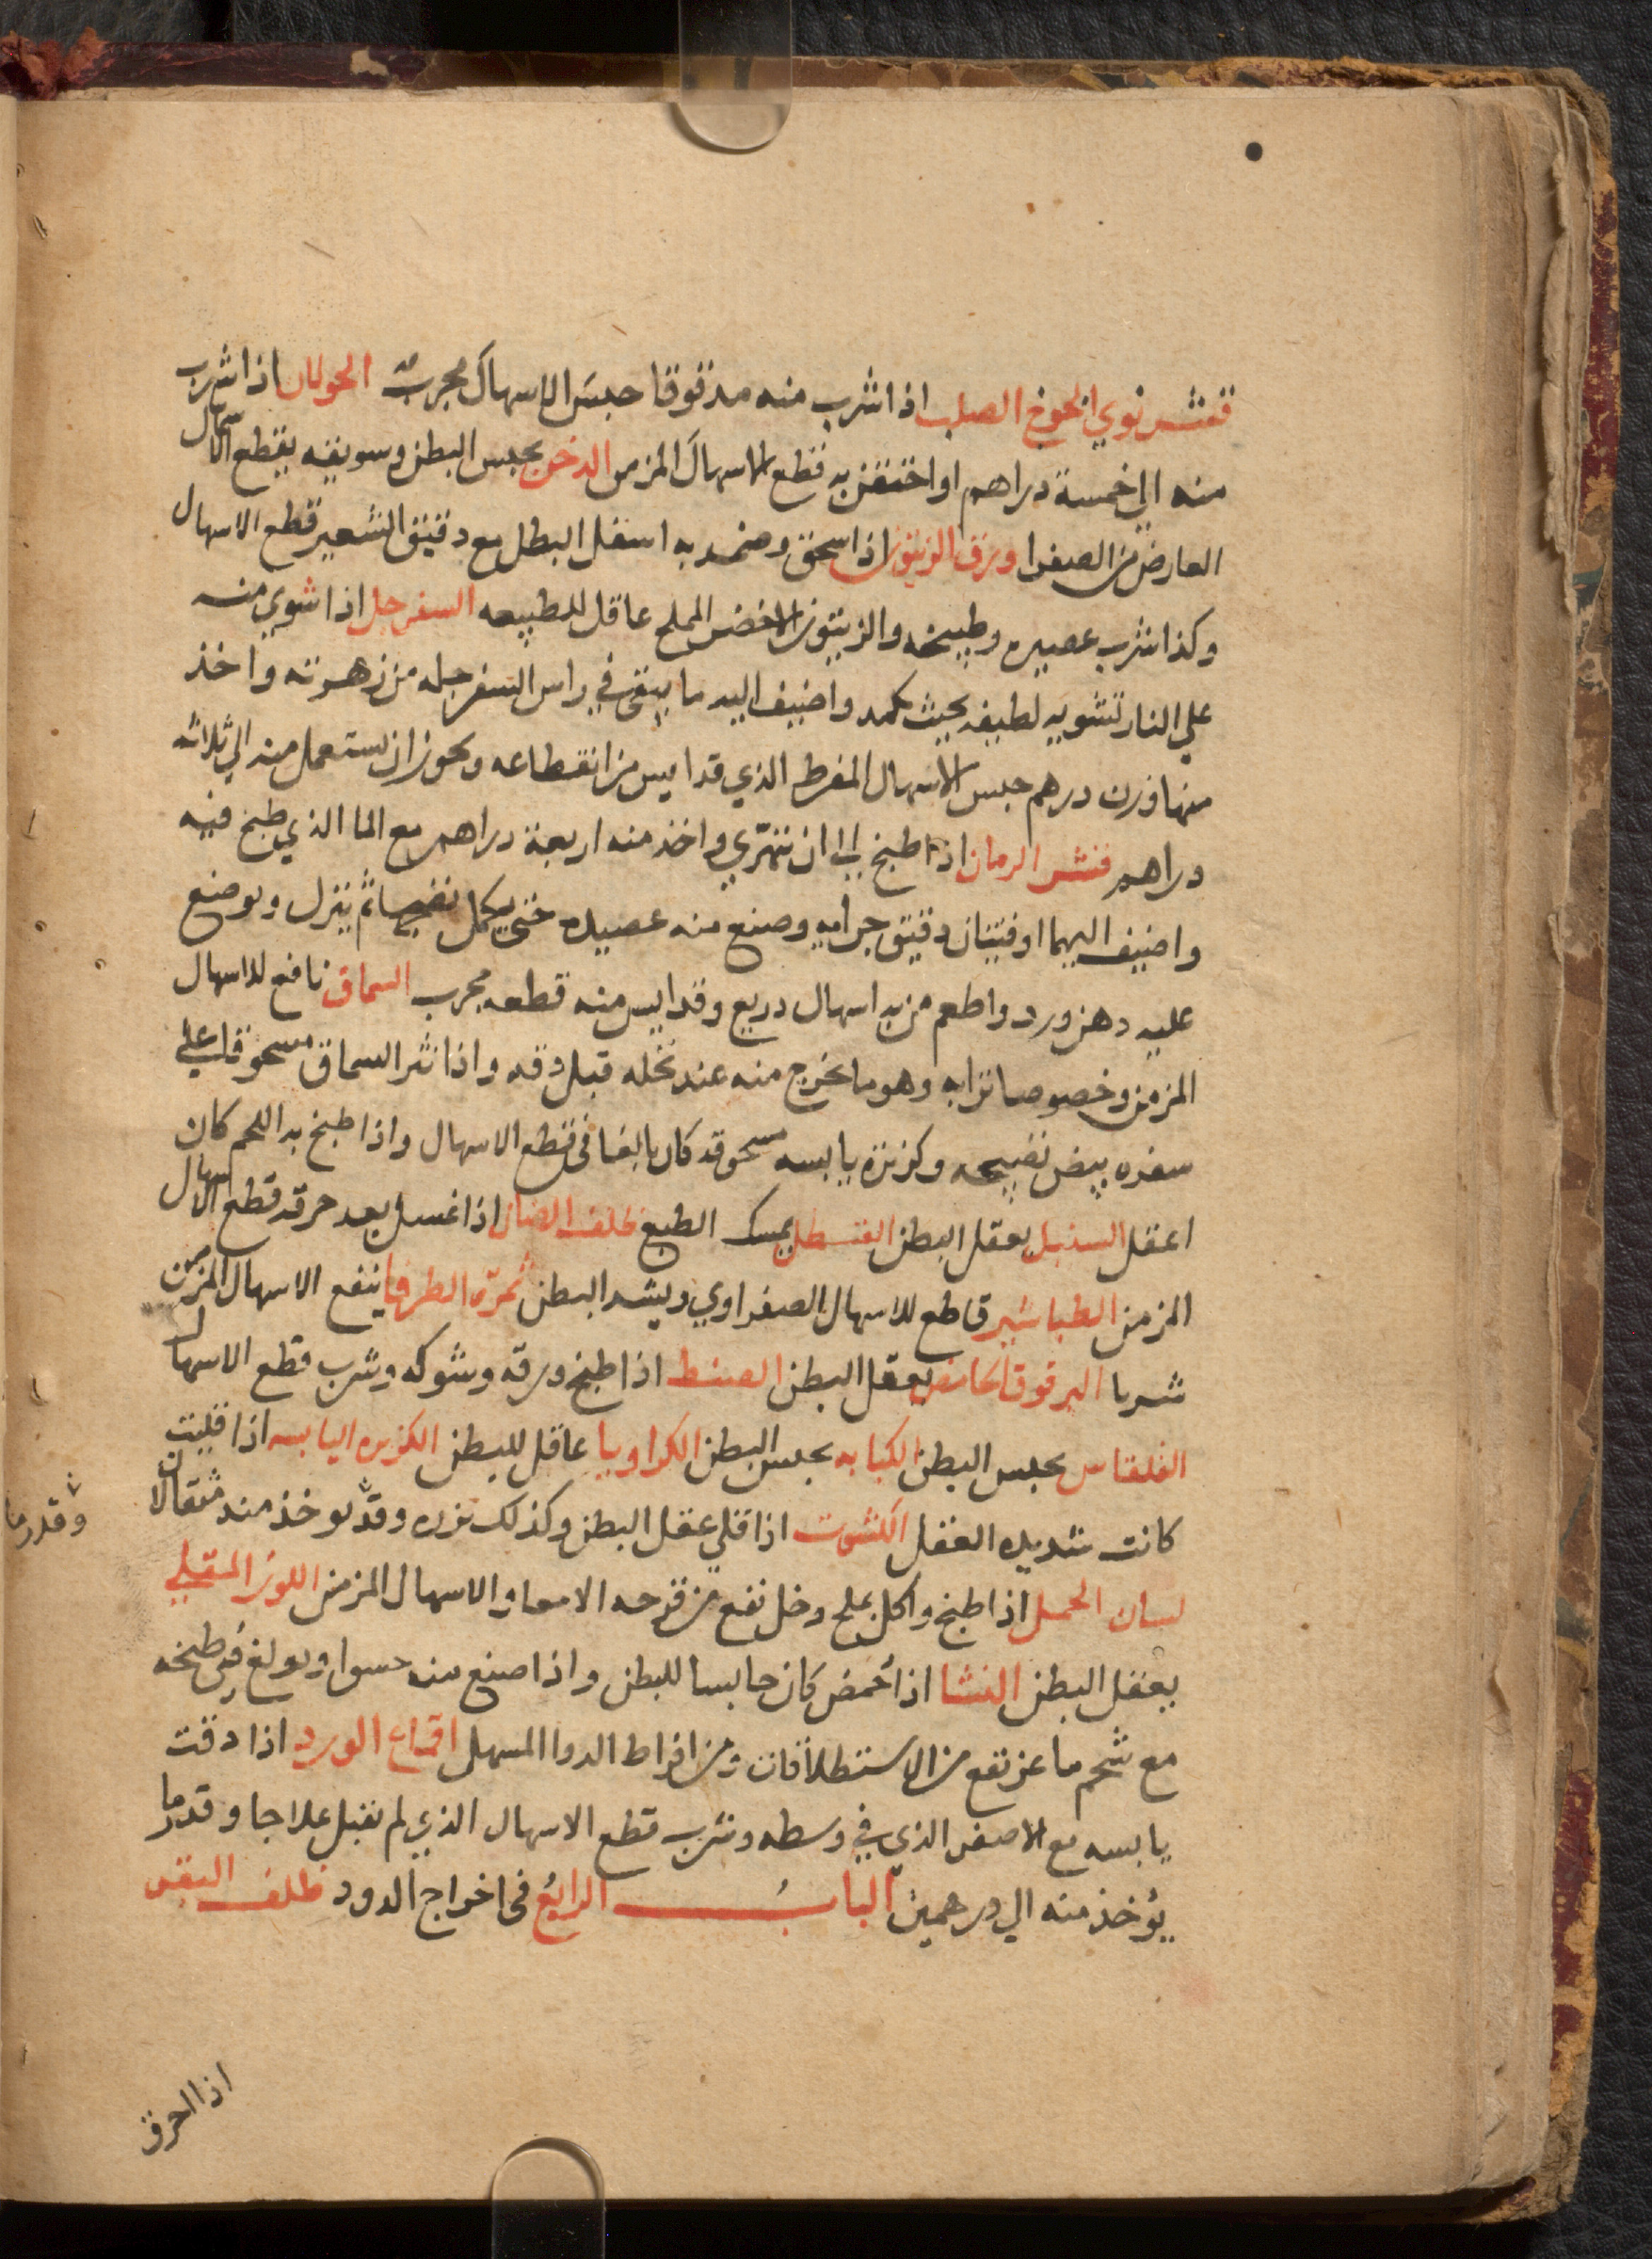 قشر نوي الخوخ الصلب اذا شرب منه مدقوقا حبس الاسهال مجرب الحولان اذا شرب
منه الي خمسة دراهم او احتقن به قطع الاسهال المزمن الدخن يحبس البطن وسويقه يقطع الاسهال
العارض من الصفرا ورق الزيتون اذا سحق وضمد به اسفل البطن مع دقيق الشعير قطع الاسهال
وكذا شرب عصيره وطبيخه والزيتون الاخضر المملح عاقل للطبيعه السفرجل اذا شوي منه
علي النار تشويه لطيفه بحيث يكمد واضيف اليه ما يبقي في راس السفرجله من زهرته واخذ
منها وزن درهم حبس الاسهال المفرط الذي قد ايس من انقطاعه ويجوز ان يستعمل منه الي ثلاثه
دراهم قشر الرمان اذا طبخ الي ان تهري واخذ منه اربعة دراهم مع الما الذي طبخ فيه
واضيف اليهما اوقيتان دقيق وصنع منه عصيده حتي يكمل نضجها ثم ينزل ويوضع
عليه دهن ورد واطعم من به اسهال دريع وقد ايس منه قطعه مجرب السماق نافع للاسهال
المزمن وخصوصا ترابه وهو ما يخرج منه عند نخله قبل دقه واذا نثر السماق مسحوقا علي
صفره بيض نضيجه وكزبرة يابسه مسحوقه كان بالغا في قطع الاسهال واذا طبخ به اللحم كان
اعقل السنبل يعقل البطن القسطل يمسك الطبع ظلف الضان اذا غسل بعد حرقه قطع الاسهال
المزمن الطباشير قاطع للاسهال الصفراوي ويشد البطن ثمرة الطرفا ينفع الاسهال المزمن
شربا البرقوق الحامض يعقل البطن الصنط اذا طبخ ورقه وشوكه وشرب قطع الاسهال
القلقاس يحبس البطن الكبابه يحبس البطن الكراويا عاقل للبطن الكزبره اليابسه اذا قليت
كانت شديده العقل الكشوت اذا قلي عقل البطن وكذلك بزره وقد يوخذ منه مثقالان
وقدر ما
لسان الحمل اذا طبخ واكل بملح وخل نفع من قرحه الامعا والاسهال المزمن اللوز المقلي
يعقل البطن النشا اذا حمض كان حابسا للبطن واذا صنع منه حسوا وبولغ في طبخه
مع شحم ماعز نفع من الاستطلاقات ومن افراط الدوا المسهل اقماع الورد اذا دقت
يابسه مع الاصفر الذي في وسطه وشرب قطع الاسهال الذي لم يقبل علاجا وقدر ما
يؤخذ منه الي درهمين الباب الرابع في اخراج الدود ظلف البقر
اذا احرق